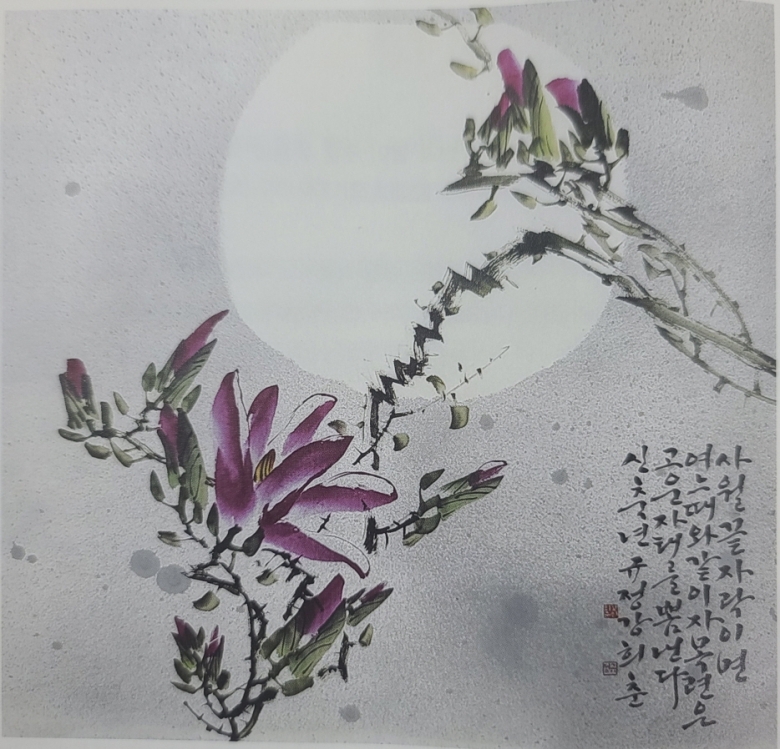 사월끝자락이면
여느때와같이자목련은
고운자태를뽐낸다
신축년규정강희춘